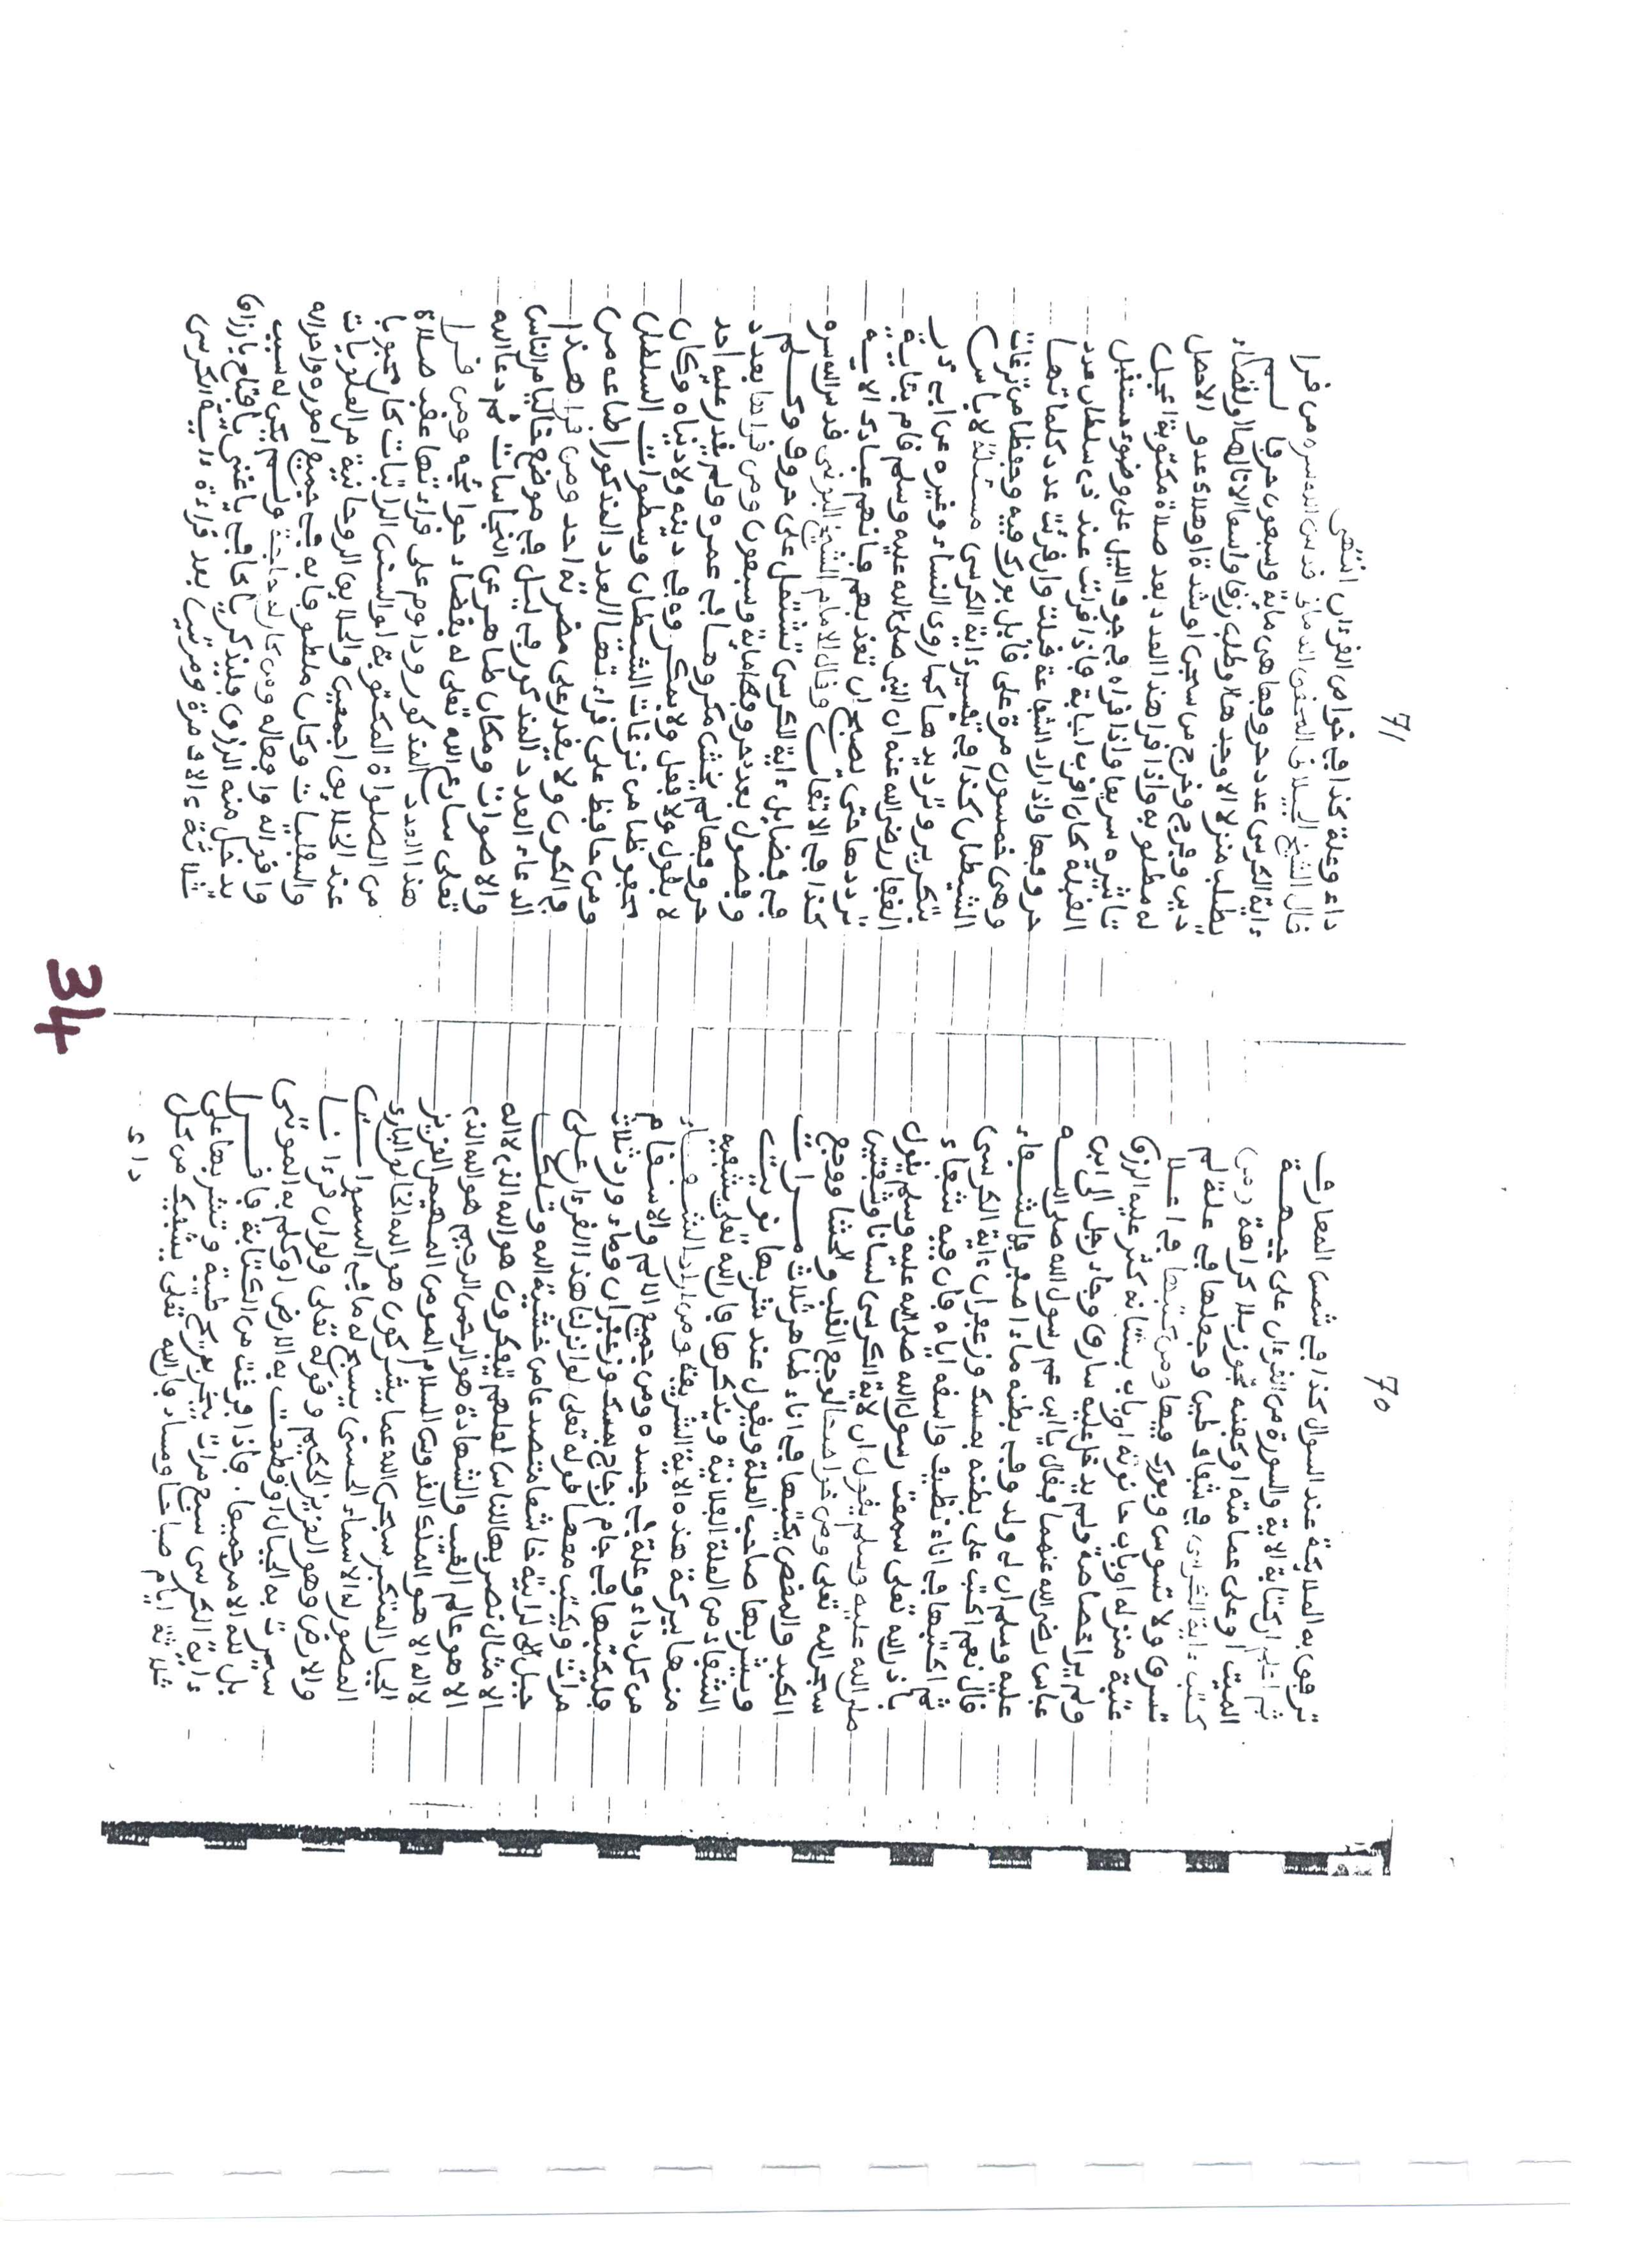 70
ترفق به الملائكة عند السوال كذا في شمس المعارف
ثم اعلم ان كتابة الاية والسورة من القرءان على جبهة
الميت او على عمامته او كفنه تجوز بلا كراهة ومن
كتب ءاية الكرسي في شقاف طين وجعلها في غلة لم
تسرق ولا تسوس وبورك فيها ومن كتبها في اعلا
عتبة منزله او باب حانوته او باب بستانه كثر عليه الرزق
ولم ير خصاصة ولم يدخل عليه سارق وجاء رجل الى ابن
عباس رضى الله عنهما فقال يا ابن عم رسول الله صلى الله
عليه وسلم ان لي ولد وفي بطنه ماء اصفر فالشفاء
قال نعم اكتب على بطنه بمسك وزعفران ءاية الكرسي
ثم اكتبها في اناء نظيف واسقه اياه فان فيه شفاء
باذن الله تعلى سمعت رسول الله صلى الله عليه وسلم يقول
صلى الله عليه وسلم يقول ان لاية الكرسي لسانا وشفتين
سجر الله تعلى ومن خواصها لوجع القلب والحشا ووجع
الكبد والمغص يكتبها في اناء طاهر ثلاث مرات
ويشربها صاحب العلة ويقول عند شربها نويت
الشفاء من العلة الفلانية ويذكرها فان الله تعلى يشفيه
منها ببركة هذه الاية الشريفة ومن اراد الشفاء
من كل داء وعلة في جسده ومن جميع الالم والاسقام
فليكتبها في جام زجاج بمسك وزعفران وماء ورد ثلاث
مرات ويكتب معها قوله تعلى لو انزلنا هذا القرءان على
جبل لرايته خاشعا متصدعا من خشية الله وتلك
الامثال نضربها للناس لعلهم يتفكرون هو الله الذي لا اله
الا هو عالم الغيب والشهادة هو الرحمن الرحيم هو الله الذي
لا اله الا هو الملك القدوس السلام المومن المهيمن العزيز
الجبار المتكبر سبحن الله عما يشركون هو الله الخالق البارئ
المصور له الاسماء الحسنى يسبح له ما في السموات
والارض وهو العزيز الحكيم وقوله تعلى ولو ان قرءانا
سيرت به الجبال او قطعت به الارض او كلم به الموتى
بل لله الامر جميعا. فاذا فرغت من الكتابة فاقرا
ءاية الكرسي سبع مرات بخر بريح طيبة وتشربها على
ثلاثة ايام صباحا ومساء فان الله تعلى يشفيك من كل
داء
71
داء وعلة كذا في خواص القرءان انتهى
قال الشيخ الجيلاني قدس الله سره من قرا
ءاية الكرسي عدد حروفها هي ماية وسبعون حرفا لم
يطلب منزلا الا وجدها ولا طلب رزق واسعا الا نالها ولا لقضاء
دين وفرج وخرج من سجن او شدة او هلاك عدو الا حصل
له مطلوبه واذا قرا هذا العدد بعد صلاة مكتوبة اعجل
تاثيره سريعا واذا قراه في جوف الليل على وضوء مستقبل
القبلة كان اقرب اجابة واذا قرات عند ذي سلطان عدد
حروفها واذا اراد الشفاعة قبلت وان قرئت عدد كلماتها
وهي خمسون مرة على قابل بورك فيه وحفظا من نزغات
الشيطان كذا في تفسير ءاية الكرسي مسئلة لا باس
بتكرير وترديدها كما روى النساء وغيره عن ابي ذر
الغفار رضى الله عنه ان النبي صلى الله عليه وسلم قام بئاية
يرددها حتى اصبح ان تعذبهم فانهم عبادك الاية
كذا في الاتقان وقال الامام الشيخ البوني قدس الله سره
في فضايل ءاية الكرسي تشتمل على حروف وكلم
وفصول بعدد حروفها ماية وسبعون ومن قراها بعدد
حروفها لم يخش مكروها في عمره ولم يقدر عليه احد
لا بقول ولا فعل ولا بمكر وفي دينه ولا دنياه وكان
محفوظا من نزغات الشيطان وسطوات السلطان
ومن حافظ على قراءتها العدد المذكور اطاعه من
في الكون ولا يقدر على مضرته احد ومن قرا هذا
الدعاء العدد المذكور في ليل في موضع خاليا من الناس
والاصوات ومكان طاهر عن النجاسات ثم دعا الله
تعلى سارع الله تعلى له بقضاء حوائجه ومن قرا
هذا العدد المذكور وداوم على قراءتها عقب صلاة
من الصلوات المكتوبة او السنن الراتبات كان محبوبا
عند الخلائق اجمعين والخلايق الروحانية من العلويات
والسفليات وكان ملطوفا به في جميع اموره واحواله
واقواله وافعاله ومن كان له حاجة ولم يكن له سبب
يدخل منه الرزق فليذكر يا كافي يا غني يا فتاح يا رزاق
ثلاثة ءالاف مرة ومرتين بعد قراءة ءاية الكرسي
34